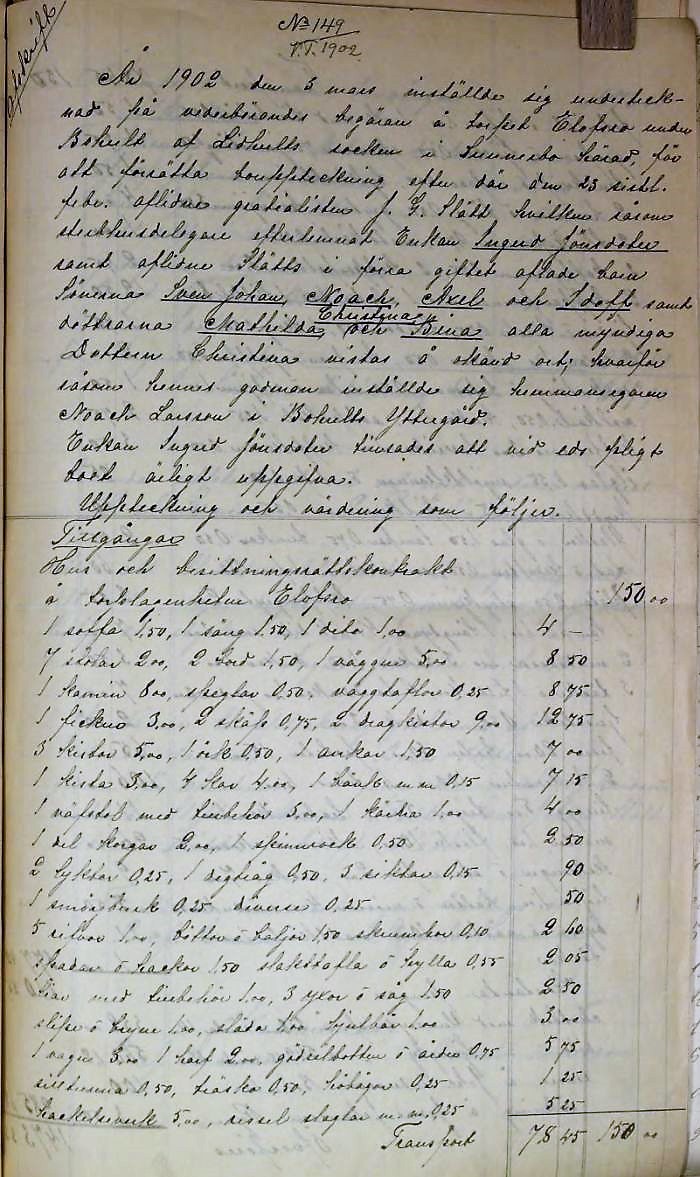 Afskrift
No 149
V.T. 1902
År 1902 den 5 mars inställde sig underteck-
nad på vederbörandes begäran å torpet Elofsro under
Bohult af Lidhults socken i Sunnerbo härad, för
att förrätta bouppteckning efter där den 23 sistl.
febr. aflidne gratialisten J. G. Slätt hvilken såsom
sterbhusdelegare efterlemnat Enkan Ingrid Jönsdoter
samt aflidne Slätts i förra giftet aflade barn
Sönerna Sven Johan, Noach, Axel och Idoff samt
döttrarna Mathilda, Christina och Bina alla myndiga
Dottern Christina vistas å okänd ort; hvarför
såsom hennes godman inställde sig hemmansegaren
Noach Larsson i Bohults Yttergård.
Enkan Ingrid Jönsdoter tillsades att vid eds pligt
boet ärligt uppgifva.
Uppteckning och värdering som följer.
Tillgångar
Hus och besittningsrättskontrakt
å torplägenheten Elofsro 150 00
1 soffa 1,50, 1 säng 1,50, 1 dito 1,00 4 –
7 stolar 2,00, 2 bord 1,50, 1 väggur 5,00 8 50
1 kamin 8,00, speglar 0,50, väggtaflor 0,25 8 75
1 fickur 3,00, 2 skåp 0,75, 2 dragkistor 9,00 12 75
3 kistor 5,00, 1 ark 0,50, 1 ankar 1,50 7 00
1 kista 3,00, 4 kar 4,00, 1 bänk m.m 0,15 7 15
1 väfstol med tillbehör 3,00, 1 kärna 1,00 4 00
1 del korgar 2,00, 1 spinnrock 0,50 2 50
2 lyktor 0,25, 1 degtråg 0,50, 3 siktar 0,15 90
1 0,25 diverse 0,25 50
5 silvar 1,00, böttor o baljor 1,50 0,10 2 60
spadar o hackor 1,50 o hylla 0,55 2 05
med tillbehör 1,00, 3 yxor o såg 1,50 2 50
slipa o bryne 1,00, släda 1,00 hjulbår 1,00 3 00
1 vagn 3,00 1 harf 2,00, o årder 0,75 5 75
silltunna 0,50, träsko 0,50, 0,25 1 25
hackelseverk 5,00, m.m. 0,25 5 25
Transport 78 45 150 00